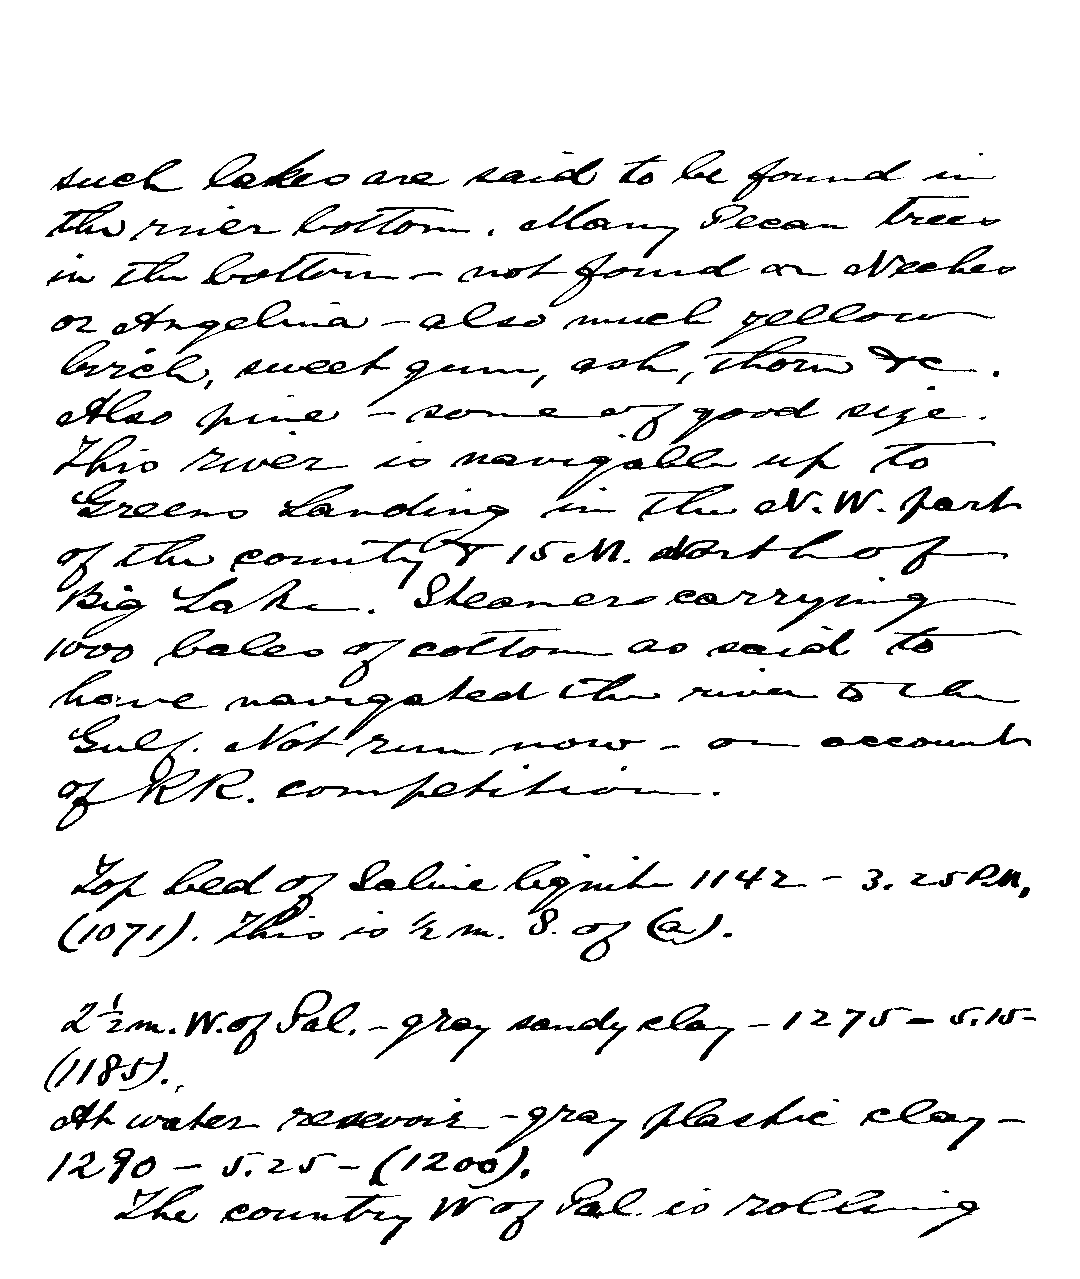 such lakes are said to be found in
the river bottom. Many Pecan trees
in the bottom - not found on Neches
or Angelina - also much yellow
birch, sweet gum, ash, thorn &c.
Also pine - some of good size.
This river is navigable up to
Greens Landing in the N.W. part
of the county & 15 M. North of
Big Lake. Steamers carrying
1000 bales of cotton as said to
have navigated the river to the
Gulf. Not run now - on account
of RR. competition.
Top bed of Saline lignite 1142 - 3.25 P.M.
(1071). This is ½ m. S. of (a).
2½ m. W. of Pal. - gray sandy clay - 1275 - 5.15 -
(1185).
At water resevoir - gray plastic clay -
1290 - 5.25 - (1200).
The country W of Pal. is rolling